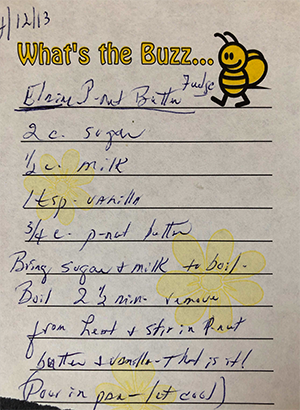 4/12/13
What's the Buzz...
Elaine P-nut Butter Fudge
2 c. sugar
1/2 c. milk
1 tsp. vanilla
3/4 c. p-nut butter
Bring sugar & milk to boil-
Boil 2 1/2 min- remove
from heat & stir in P-nut
butter & vanilla- That is it!
(Pour in pan- let cool)